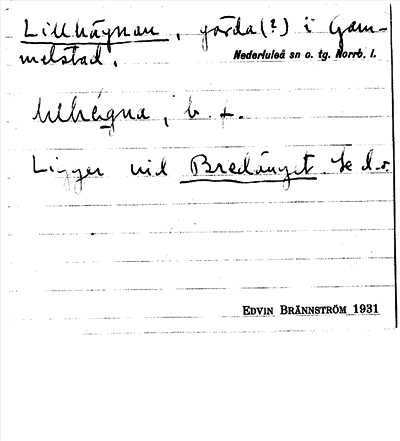 Lillhägnan, gärda(?) i Gam-
melstad.
Nederluleå sn o. tg. Norrb. l.
b. f.
Ligger vid Bredänget. Se d.o.
EDVIN BRÄNNSTRÖM 1931